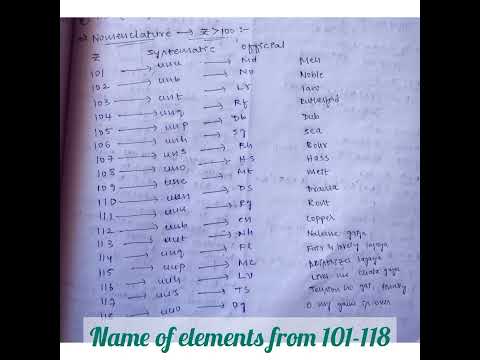 Nomenclature → Z > 100 :-
Z Systematic official
101 → unu → Md Men
102 → unb → No Noble
103 → unt → Lr
104 → unq → Rf Rutherford
105 → unp → Db Dub
106 → unh → Sg Sea
107 → uns → Bh Bohr
108 → uno → Hs Hass
109 → une → Mt meit
110 → uun → Ds
111 → uuu → Rg Ront
112 → uub → cn Copper
113 → uut → Nh gaya
114 → uuq → Fl Fair & lovely lagaya
115 → uup → Mc lagaya
116 → uuh → Lv gaya
117 → uus → Ts
118 → uuo → Og O my game is over
Name of elements from 101-118